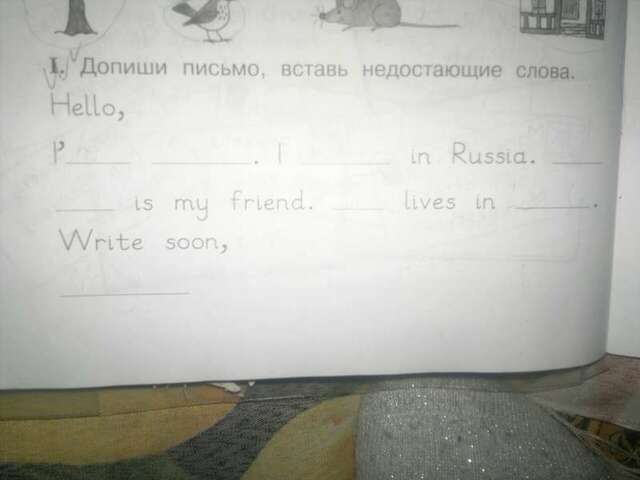 I. Допиши письмо, вставь недостающие слова.
Hello,
I'____ ______. I ______ in Russia. ____
____ is my friend. ____ lives in ______.
Write soon,
________